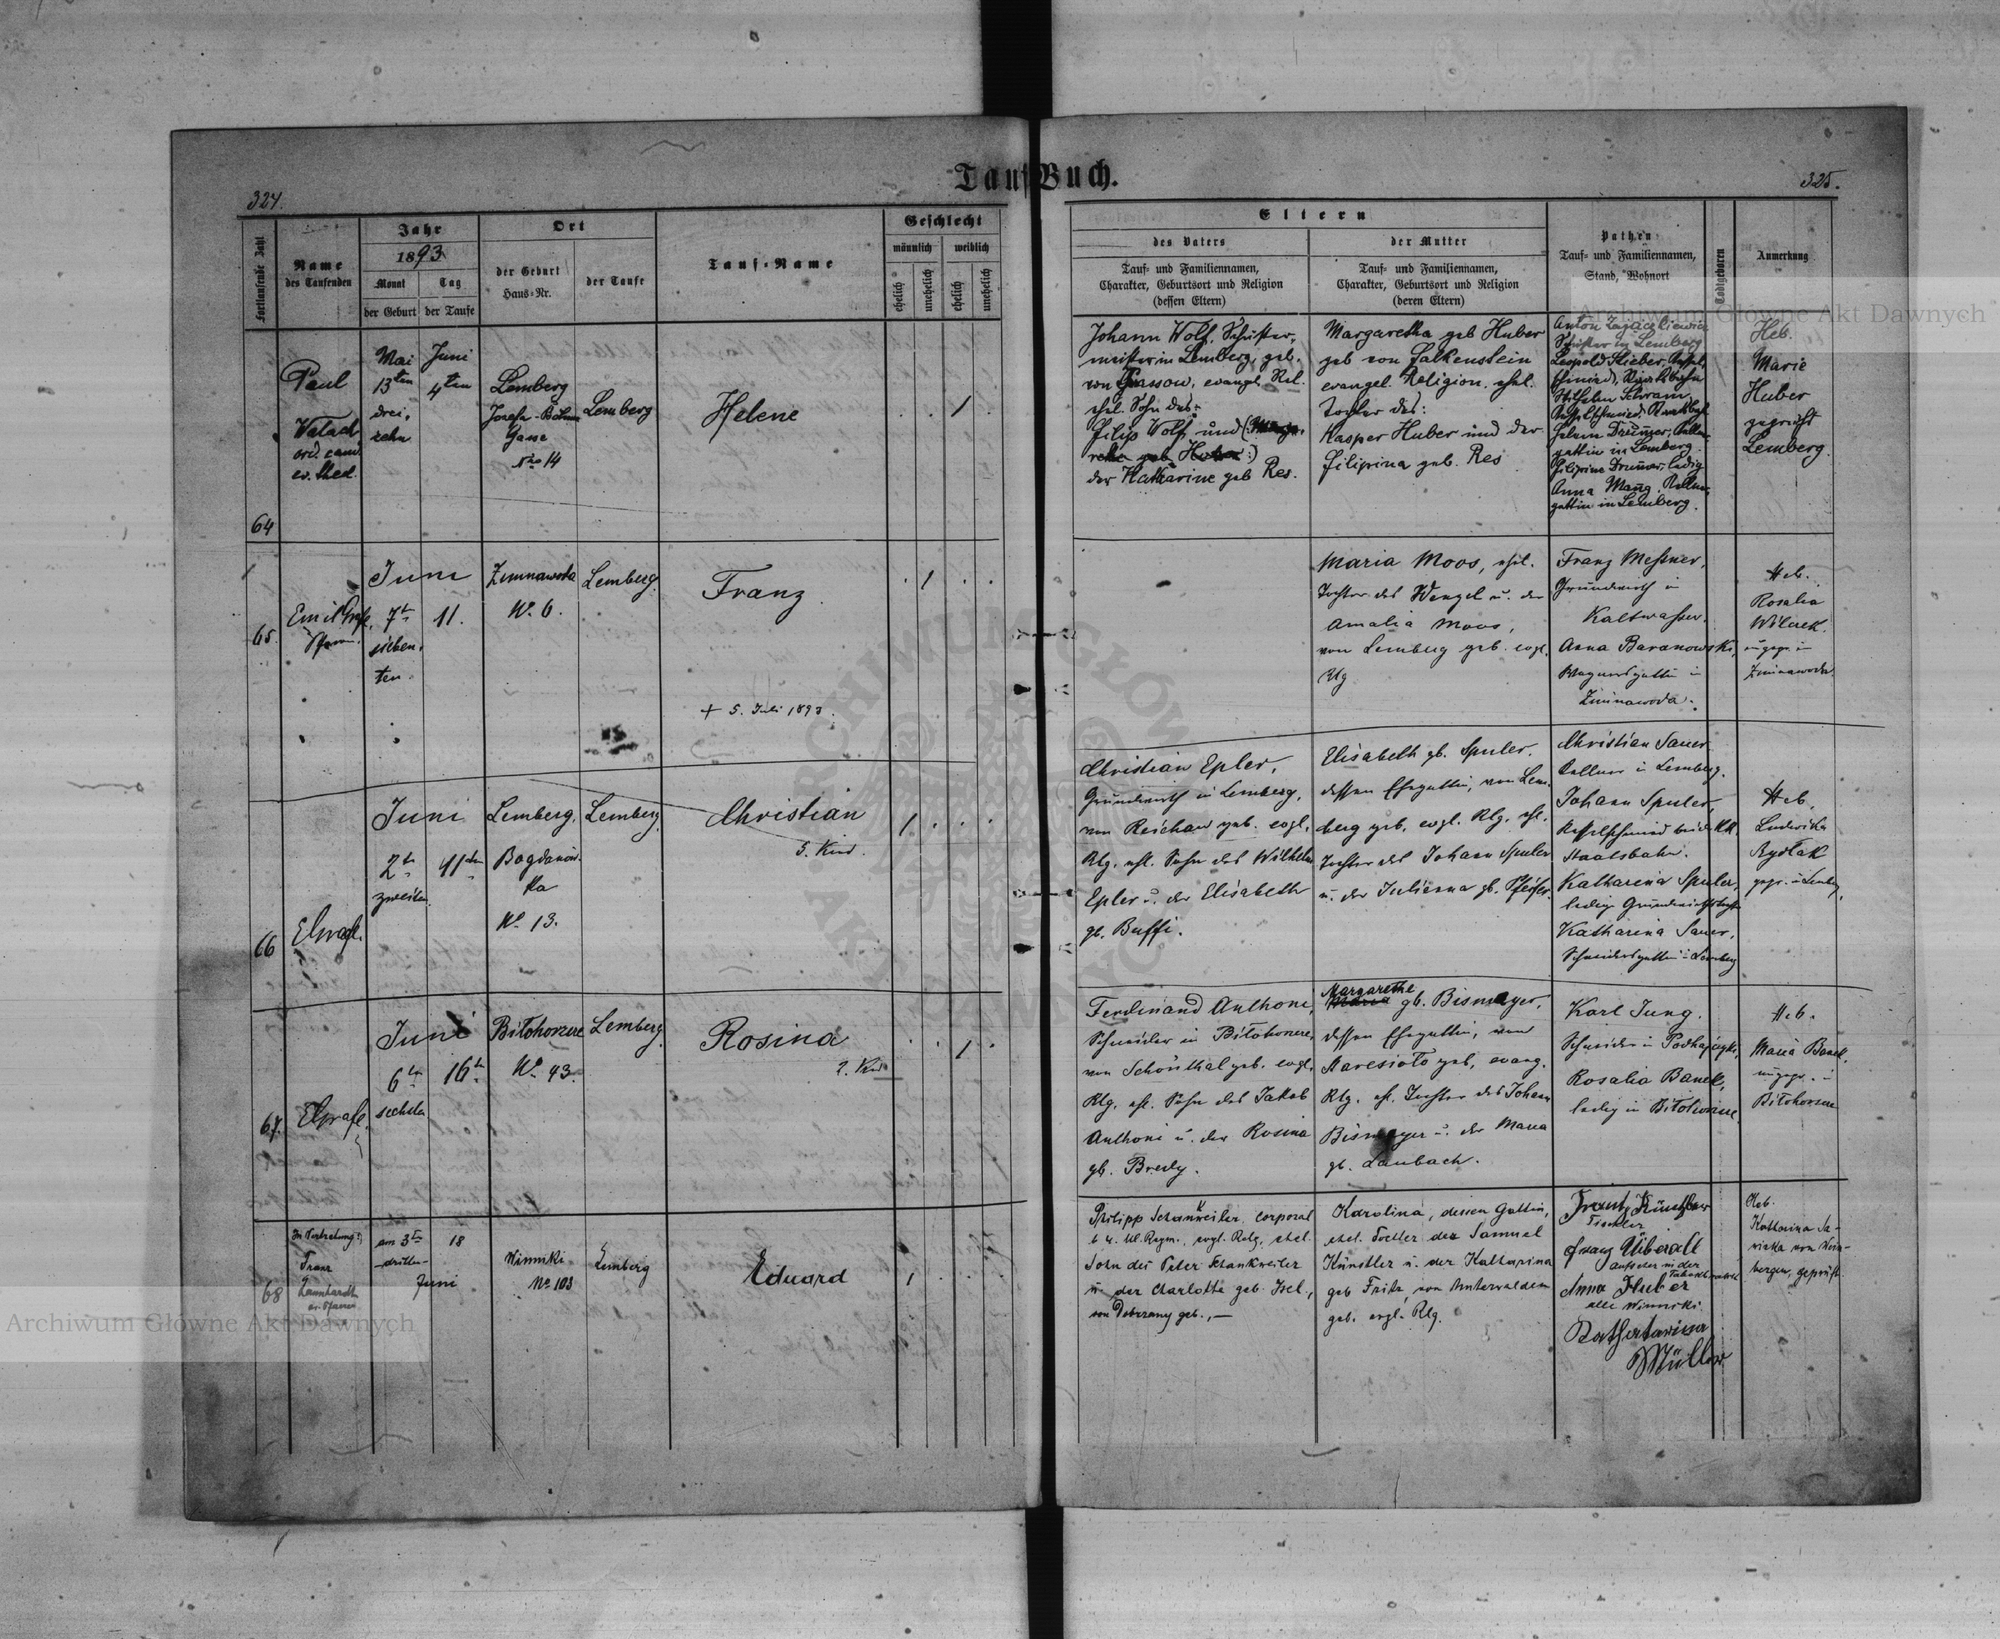 324.
Tauf Buch.
325.
Fortlaufende Zahl
Name
des Taufenden
Jahr
1893
Monat
Tag
der Geburt
der Taufe
Ort
der Geburt
Haus-Nr.
der Taufe
Tauf-Name
Geschlecht
männlich
weiblich
ehelich
unehelich
ehelich
unehelich
Eltern
des Vaters
Tauf- und Familiennamen,
Charakter, Geburtsort und Religion
(dessen Eltern)
der Mutter
Tauf- und Familiennamen,
Charakter, Geburtsort und Religion
(deren Eltern)
Pathen
Tauf- und Familiennamen,
Stand, Wohnort
Todtgeboren
Anmerkung
64
Paul
Walach
ord. cand.
ev. theol.
Mai
13ten
drei-
zehn
Juni
4ten
Lemberg
Josefa-Böhm
Gasse
Nro 14
Lemberg
Helene
1
Johann Wolf, Schuster-
meister in Lemberg, geb.
von evangel. Rel.
ehel. Sohn des:
Filip Wolf und
reta geb. Huber:)
der Katharine geb. Res.
Margaretha geb. Huber
geb. von Falkenstein
evangel. Religion, ehel.
Tochter des:
Kasper Huber und der
Filipina geb. Res
Anton
Schuster in Lemberg
Leopold Hieber, Kessel-
schmied, Staatsbahn
Wilhelm Schram
Kesselschmied, Staatsbah
gattin in Lemberg
ledig
Anna Mang, Kellner-
gattin in Lemberg.
Heb.
Marie
Huber
geprüft
Lemberg.
65.
Emil Grafl,
Pfarrer.
Juni
7t
sieben-
ten.
11.
Zimnawoda
No 6.
Lemberg.
Franz
+ 5. Juli 1893.
1
Maria Moos, ehel.
Tochter des Wenzel u. der
Amalia Moos,
von Lemberg geb. evgl.
Rlg
Franz Meßner,
Grundwirth in
Kaltwasser.
Anna Baranowski,
Wagnersgattin in
Zimnawoda.
Heb.
Rosalia
Wilczek
ungepr. in
Zimnawoda
66
EGrafl.
Juni
2t
zweiten.
11ten
Lemberg,
Bogdanów-
ka
No 13.
Lemberg.
Christian
5. Kind.
1
Christian Epler,
Grundwirth in Lemberg,
von Reichau geb. evgl.
Rlg. ehl. Sohn des Wilhelm
Epler u. der Elisabeth
gb. Buffi.
Elisabeth gb. Spuler,
dessen Ehegattin, von Lem-
berg geb. evgl. Rlg. ehl.
Tochter des Johann Spuler
u. der Julianna gb. Pfeifer.
Christian Sauer
Kellner in Lemberg.
Johann Spuler
Kesselschmied bei d. KK.
Staatsbahn.
Katharina Spuler,
ledige Grundwirthstochter
Katharina Sauer,
Schneidersgattin in Lemberg
Heb.
Ludwika
Rydłak
gepr. in Lemberg.
67.
EGrafl.
Juni
6t
sechsten
16t
Biłohorszcze
No 43.
Lemberg.
Rosina
2. Kind
1
Ferdinand Anthoni,
Schneider in Biłohorszcze,
von Schönthal geb. evgl.
Rlg. ehl. Sohn des Jakob
Anthoni u. der Rosina
gb. Bredy.
Margarethe
Maria gb. Bismayer,
dessen Ehegattin, von
Staresioło geb. evang.
Rlg. ehl. Tochter des Johann
Bismayer u. der Maria
gb. Laubach.
Karl Jung,
Schneider in Podhajczyki,
Rosalia Banek,
ledig in Biłohorszcze
Heb.
Maria Banek,
ungepr. in
Biłohorszcze
68
In Vertretung:
Franz
ev. Pfarrer
am 3ten
-dritten-
18
Juni
Winniki
No 103
Lemberg
Eduard
1
Philipp Schankweiler, Corporal
b. 4. Ul. Regm., evgl. Relg. ehel.
Sohn des Peter Schankweiler
u. der Charlotte geb. Isel,
von Dobrzany geb.,—
Karolina, dessen Gattin,
ehel. Tochter des Samuel
Künstler u. der Katharina
geb. Fritz, von Unterwalden
geb. evgl. Rlg.
Frantz Künstler
Tischler
Franz Überall
Aufseher in der
Anna Huber
alle Winniki.
Katharina
Müller
Heb.
Katharina Sa-
wicka von Wein-
bergen, geprüft.
Archiwum Główne Akt Dawnych
Archiwum Główne Akt Dawnych
ARCHIWUM GŁÓWNE AKT DAWNYCH